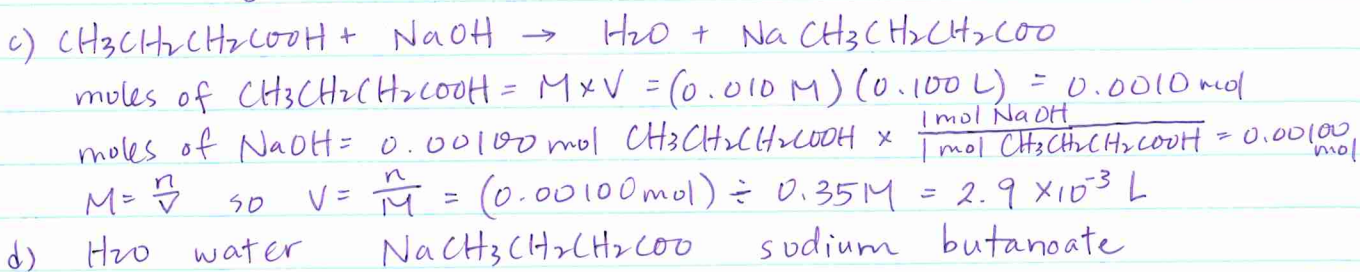 c) CH3CH2CH2COOH + NaOH → H2O + Na CH3CH2CH2COO
moles of CH3CH2CH2COOH = M×V = (0.010 M) (0.100 L) = 0.0010 mol
moles of NaOH = 0.00100 mol CH3CH2CH2COOH × 1 mol NaOH / 1 mol CH3CH2CH2COOH = 0.00100 mol
M = n/V so V = n/M = (0.00100 mol) ÷ 0.35M = 2.9 ×10⁻³ L
d) H2O water NaCH3CH2CH2COO sodium butanoate